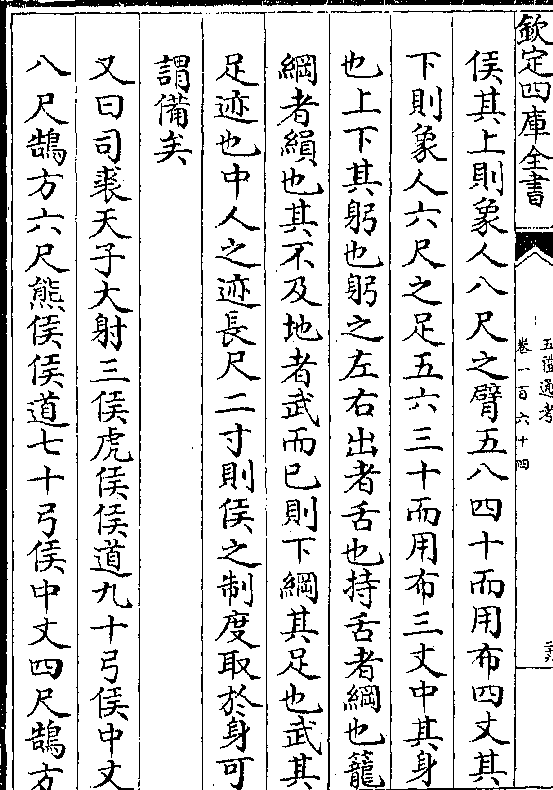 欽定四庫全書
五禮通考
卷一百六十四
侯其上則象人八尺之臂五八四十而用布四丈其
下則象人六尺之足五六三十而用布三丈中其身
也上下其躬也躬之左右出者舌也持舌者綱也籠
綱者縜也其不及地者武而已則下綱其足也武其
足迹也中人之迹長尺二寸則侯之制度取於身可
謂備矣
又曰司裘天子大射三侯虎侯侯道九十弓侯中丈
八尺鵠方六尺熊侯侯道七十弓侯中丈四尺鵠方